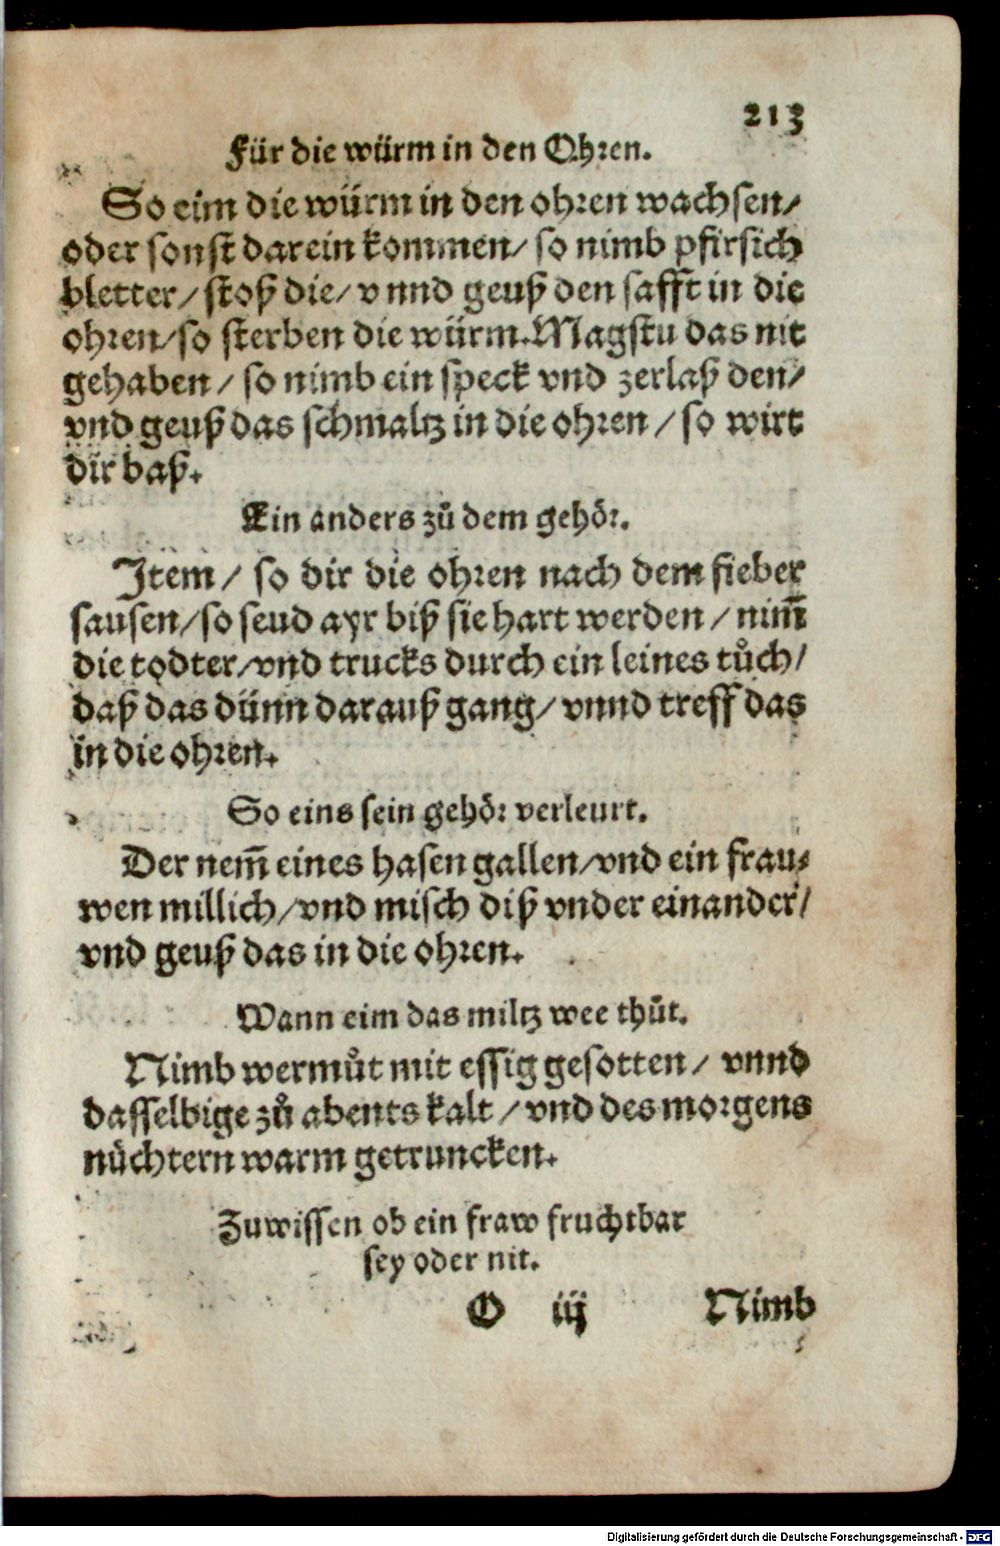 213
Für die würm in den Ohren.
So eim die würm in den ohren wachsen/
oder sonst darein kommen/ so nimb pfirsich
bletter/ stoß die/ vnnd geuß den safft in die
ohren/ so sterben die würm. Magstu das nit
gehaben/ so nimb ein speck vnd zerlaß den/
vnd geuß das schmaltz in die ohren/ so wirt
dir baß.
Ein anders zů dem gehör.
Item/ so dir die ohren nach dem fieber
sausen/ so seud ayr biß sie hart werden/ nim̄
die todter/ vnd trucks durch ein leines tůch/
daß das dünn darauß gang/ vnnd treff das
in die ohren.
So eins sein gehör verleurt.
Der nem̄ eines hasen gallen/ vnd ein frau⸗
wen millich/ vnd misch diß vnder einander/
vnd geuß das in die ohren.
Wann eim das miltz wee thůt.
Nimb wermůt mit essig gesotten/ vnnd
dasselbige zů abents kalt/ vnd des morgens
nůchtern warm getruncken.
Zuwissen ob ein fraw fruchtbar
sey oder nit.
O iij Nimb
Digitalisierung gefördert durch die Deutsche Forschungsgemeinschaft - DFG